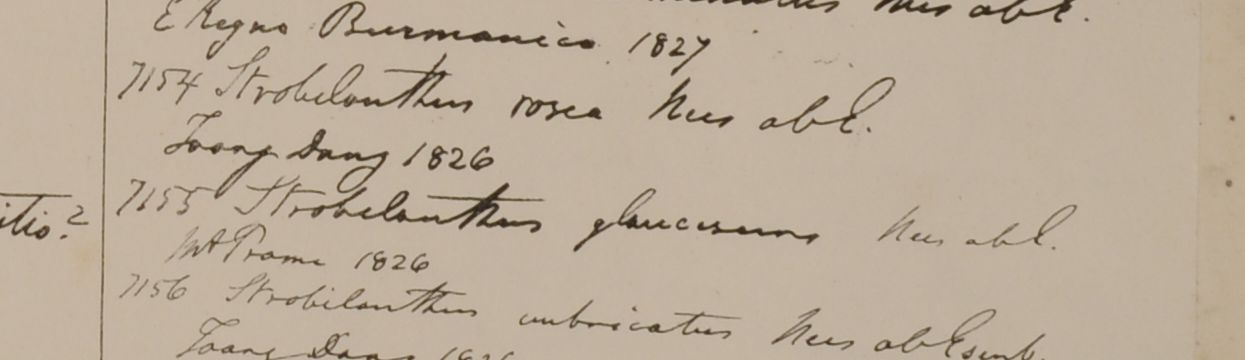 Nees ab E.
E Regno Burmanico 1827
7154 Strobilanthus rosea Nees ab E.
Toong Dong 1826
itio?
7155 Strobilanthus Nees ab E.
Mt Prome 1826
7156 Strobilanthus imbricatus Nees ab Esenb.
Toong Dong 1826